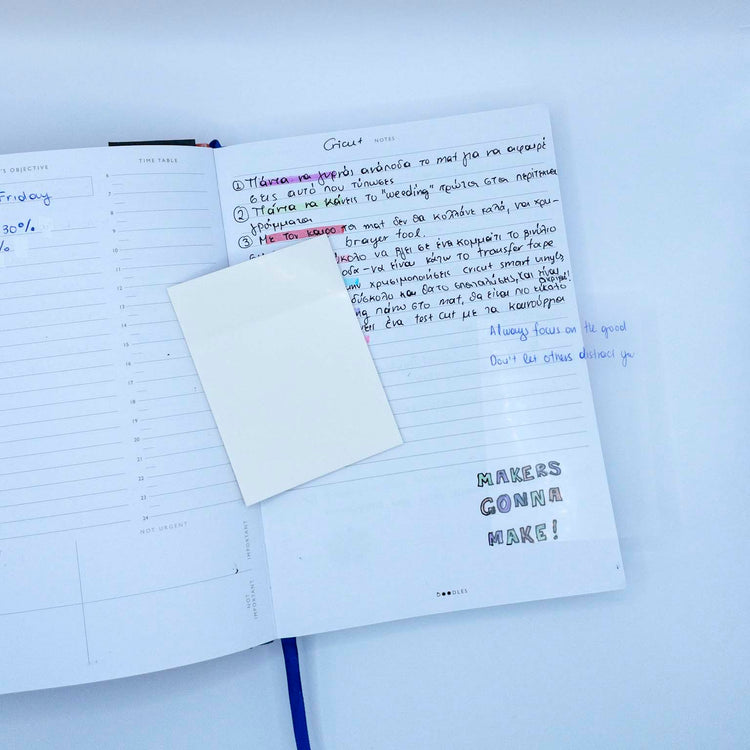 'S OBJECTIVE
Friday
30%
%
TIME TABLE
6
7
8
9
10
11
12
13
14
15
16
17
18
19
20
21
22
23
24
NOT URGENT
IMPORTANT
NOT IMPORTANT
Cricut NOTES
① Πάντα να γυρνάς ανάποδα το mat για να αφαιρέ
σεις αυτό που τύπωσες
② Πάντα να κάνεις το "weeding" πρώτα στα περίτεχνα
γράμματα
③ Με τον καιρό το mat δεν θα κολλάνε καλά, να χρη-
brayer tool.
κολο να βγει σε ένα κομμάτι το βινύλιο
οδα - να είναι κάτω το transfer tape
χρησιμοποιείς cricut smart vinyls
δύσκολο και θα το σπαταλήσεις, και είναι
ακριβό!
πάνω στο mat, θα είναι πιο εύκολο
ένα test cut με τα καινούργια
Always focus on the good
Don't let others distract you
MAKERS
GONNA
MAKE!
DOODLES